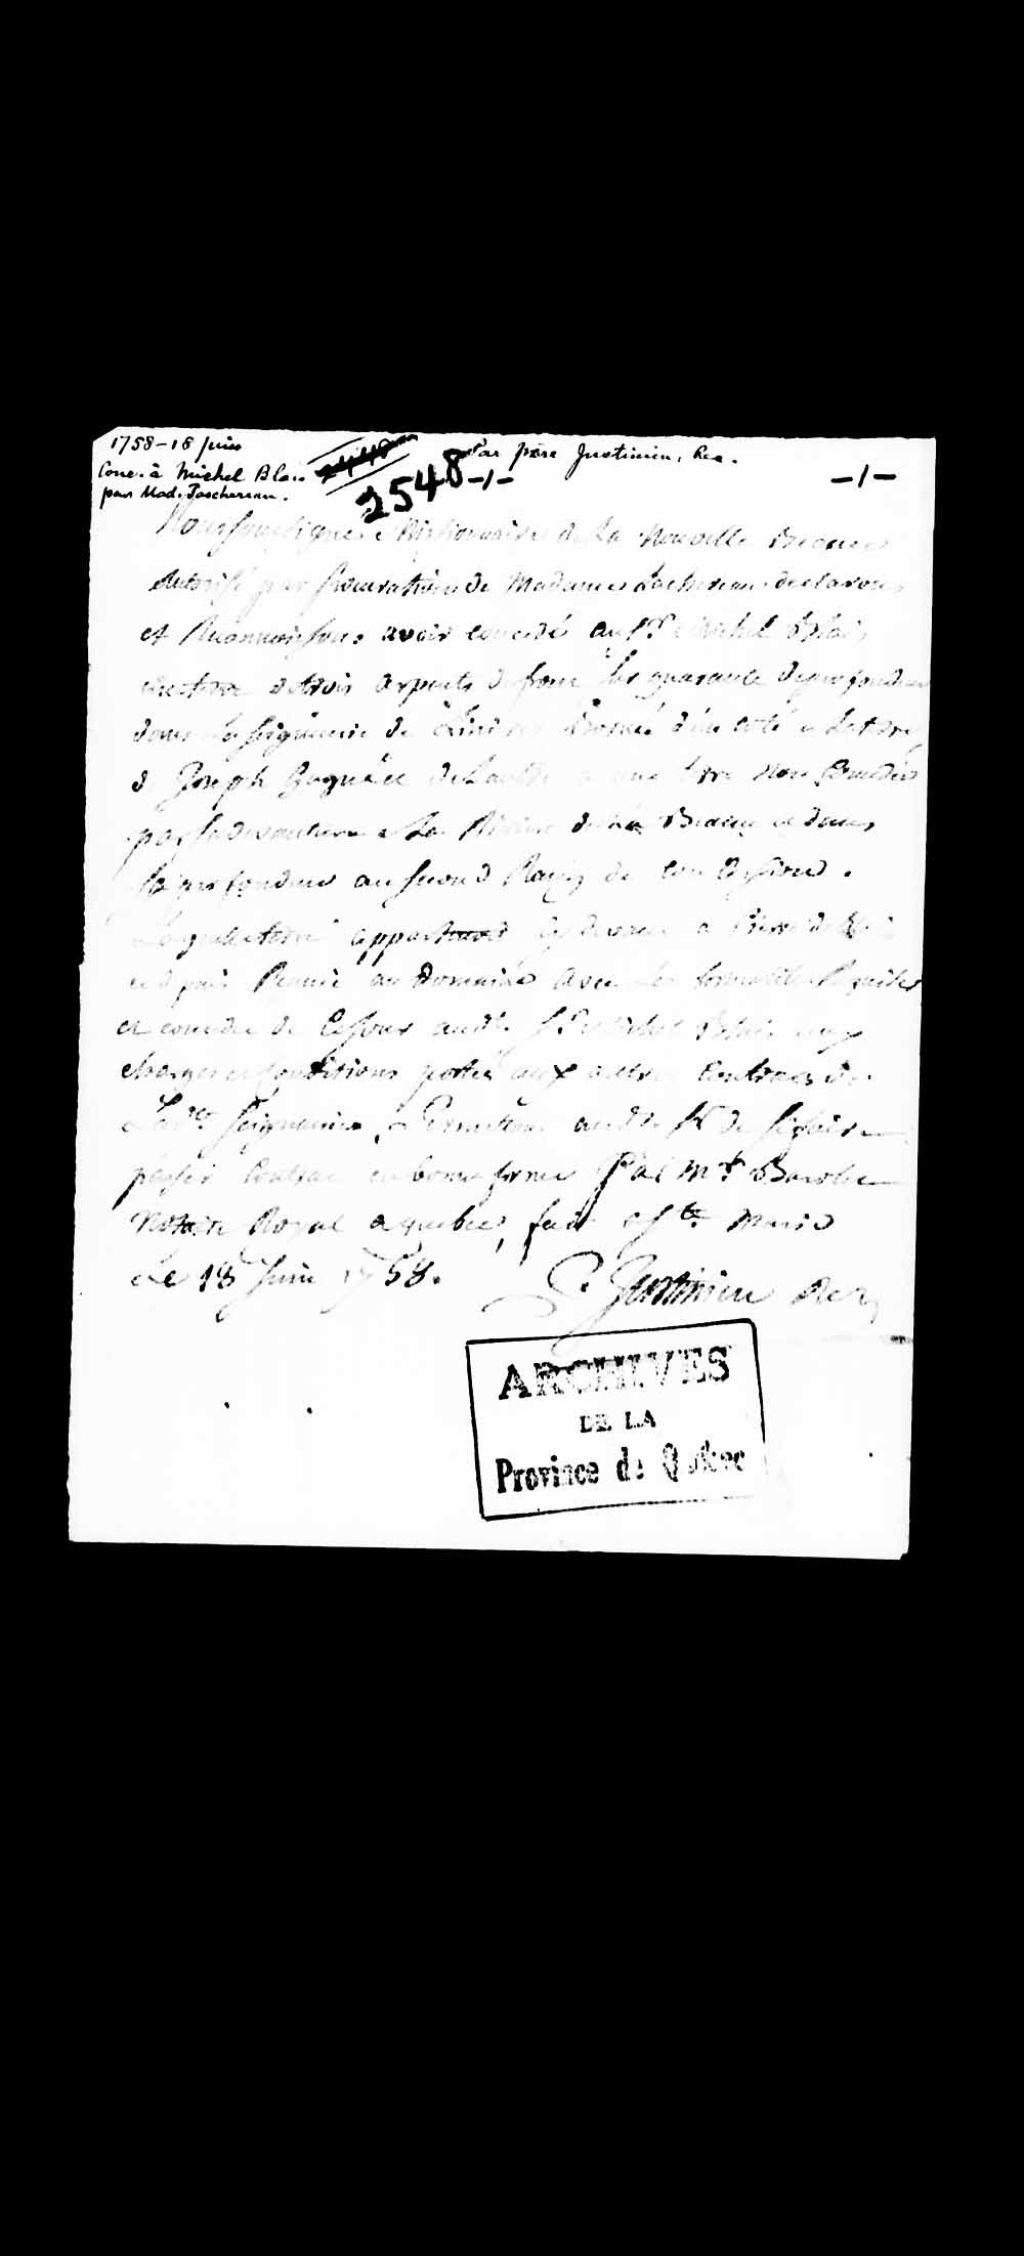 1758-18 juin
Conc. à Michel Blais
par Mad. Taschereau.
2548
-1-
Par père Justinien, Rec.
-1-
Nous soussigné Missionnaire de La Nouvelle Beauce
Autorisé par procuration de Madame Tachereau declarons
et Reconnoissons avoir concedés au Sr Michel Blais
une terre de trois arpents de front sur quarante de profondeur
dans La seigneurie de Liniere Borné d'un coté a la terre
de Joseph Gagné et de L'autre a une terre Non Concedés
par sa devanture a La Riviere de La Beauce et dans
sa profondeur au second Rang de Concession.
Laquelle terre appartenoit cy devant a
et depuis Reunie au Domaine avec Les formalités Requises
et concedée de ce jour audit Sr Michel Blais aux
charges et conditions portés aux autres Contracts de
La dte seigneurie, Permettons audit Sr de se faire
passer Contrat en bonne forme Par Mr Barolet
Notaire Royal a quebec, fait a Ste Marie
Le 18 Juin 1758.
P. Justinien Rec
ARCHIVES
DE LA
Province de Québec